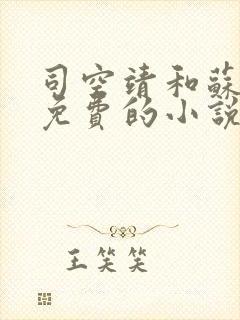 司空靖和蘇
免費的小說
王笑笑